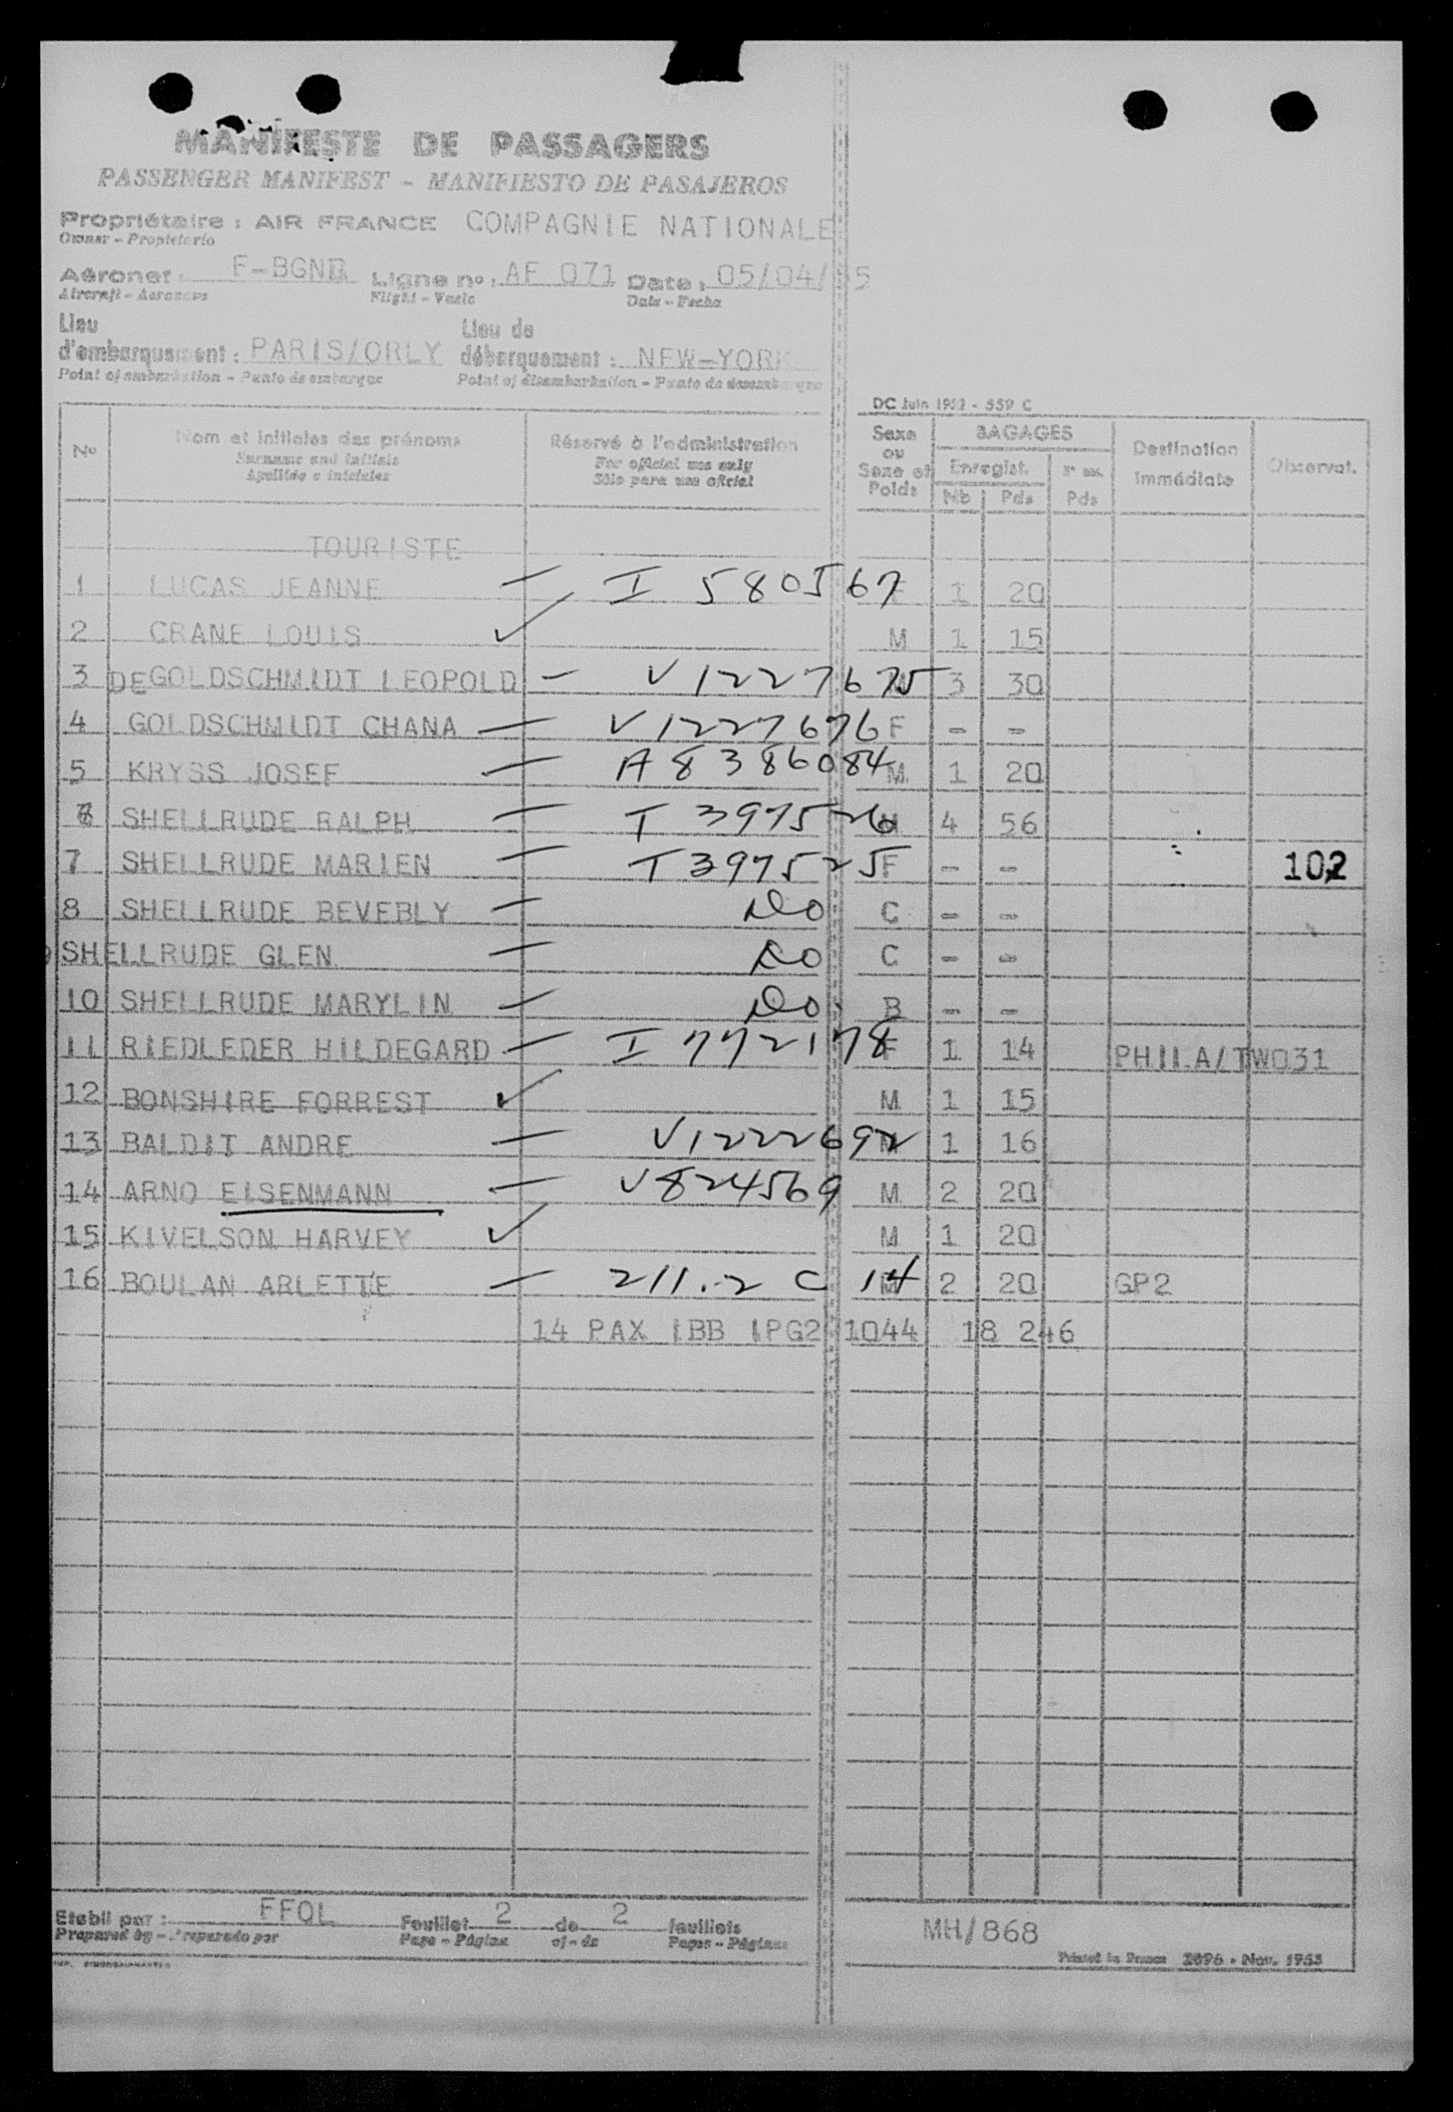 MANIFESTE DE PASSAGERS
PASSENGER MANIFEST - MANIFIESTO DE PASAJEROS
Propriétaire : AIR FRANCE COMPAGNIE NATIONALE
Owner - Propietario
Aéronef : F-BGND Ligne n° : AF 071 Date : 05/04/55
Aircraft - Aeronave Flight - Vuelo Date - Fecha
Lieu d'embarquement : PARIS/ORLY Lieu de débarquement : NEW-YORK
Point of embarkation - Punto de embarque Point of disembarkation - Punto de desembarque
DC Juin 1953 - 559 C
No Nom et initiales des prénoms Réservé à l'administration Sexe ou Sexe et Poids BAGAGES Destination Immédiate Observat.
Surname and initials For official use only Enregist.
Apellido e iniciales Sólo para uso oficial Nb Pds Pds
TOURISTE
1 LUCAS JEANNE — I 580567 F 1 20
2 CRANE LOUIS ✓ M 1 15
3 DE GOLDSCHMIDT LEOPOLD — V1227675 M 3 30
4 GOLDSCHMIDT CHANA — V1227676 F - -
5 KRYSS JOSEF — A8386084 M 1 20
6 SHELLRUDE RALPH — T 397526 M 4 56
7 SHELLRUDE MARIEN — T397525 F - - 102
8 SHELLRUDE BEVEBLY — Do C - -
9 SHELLRUDE GLEN — Do C - -
10 SHELLRUDE MARYLIN — Do B - -
11 RIEDLEDER HILDEGARD — I 772178 F 1 14 PHILA/TW031
12 BONSHIRE FORREST ✓ M 1 15
13 BALDIT ANDRE — V1222692 M 1 16
14 ARNO EISENMANN — V824569 M 2 20
15 KIVELSON HARVEY ✓ M 1 20
16 BOULAN ARLETTE — 211.2 C 14 M 2 20 GP2
14 PAX 1BB 1PG2 1044 18 246
Etabli par : FFOL Feuillet 2 de 2 feuillets MH/868
Prepared by - Preparado por Page - Página of - de Pages - Páginas
Printed in France 2896 - Nov. 1953